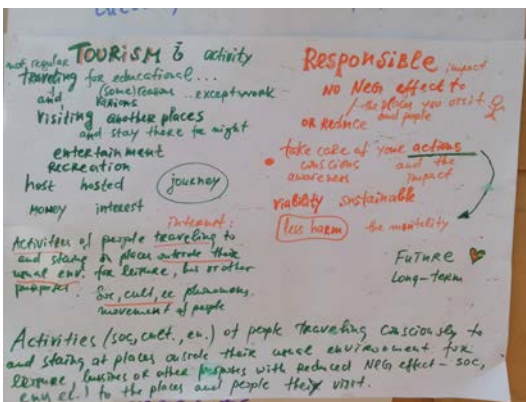 not regular
TOURISM is activity
traveling for educational...
and (some) reasons ... except work
various
visiting another places
and stay there for night
entertainment
RECREATION
host hosted
journey
MONEY interest
internet:
Activities of people traveling to
and staing on places outside their
usual env. for leisure, bus or other
purposes. Soc, cult, ec phenomena.
movement of people
Responsible impact
NO NEG effect to
the places you visit
and people
OR REDUCE
take care of your actions
conscious and the
awareness impact
viability sustainable
less harm the mentality
FUTURE
Long-term
Activities (soc, cult., en.) of people traveling consciously to
and staing at places outside their usual environment for
leisure, bussines or other purposes with reduced NEG effect - soc,
env, el.) to the places and people their visit.